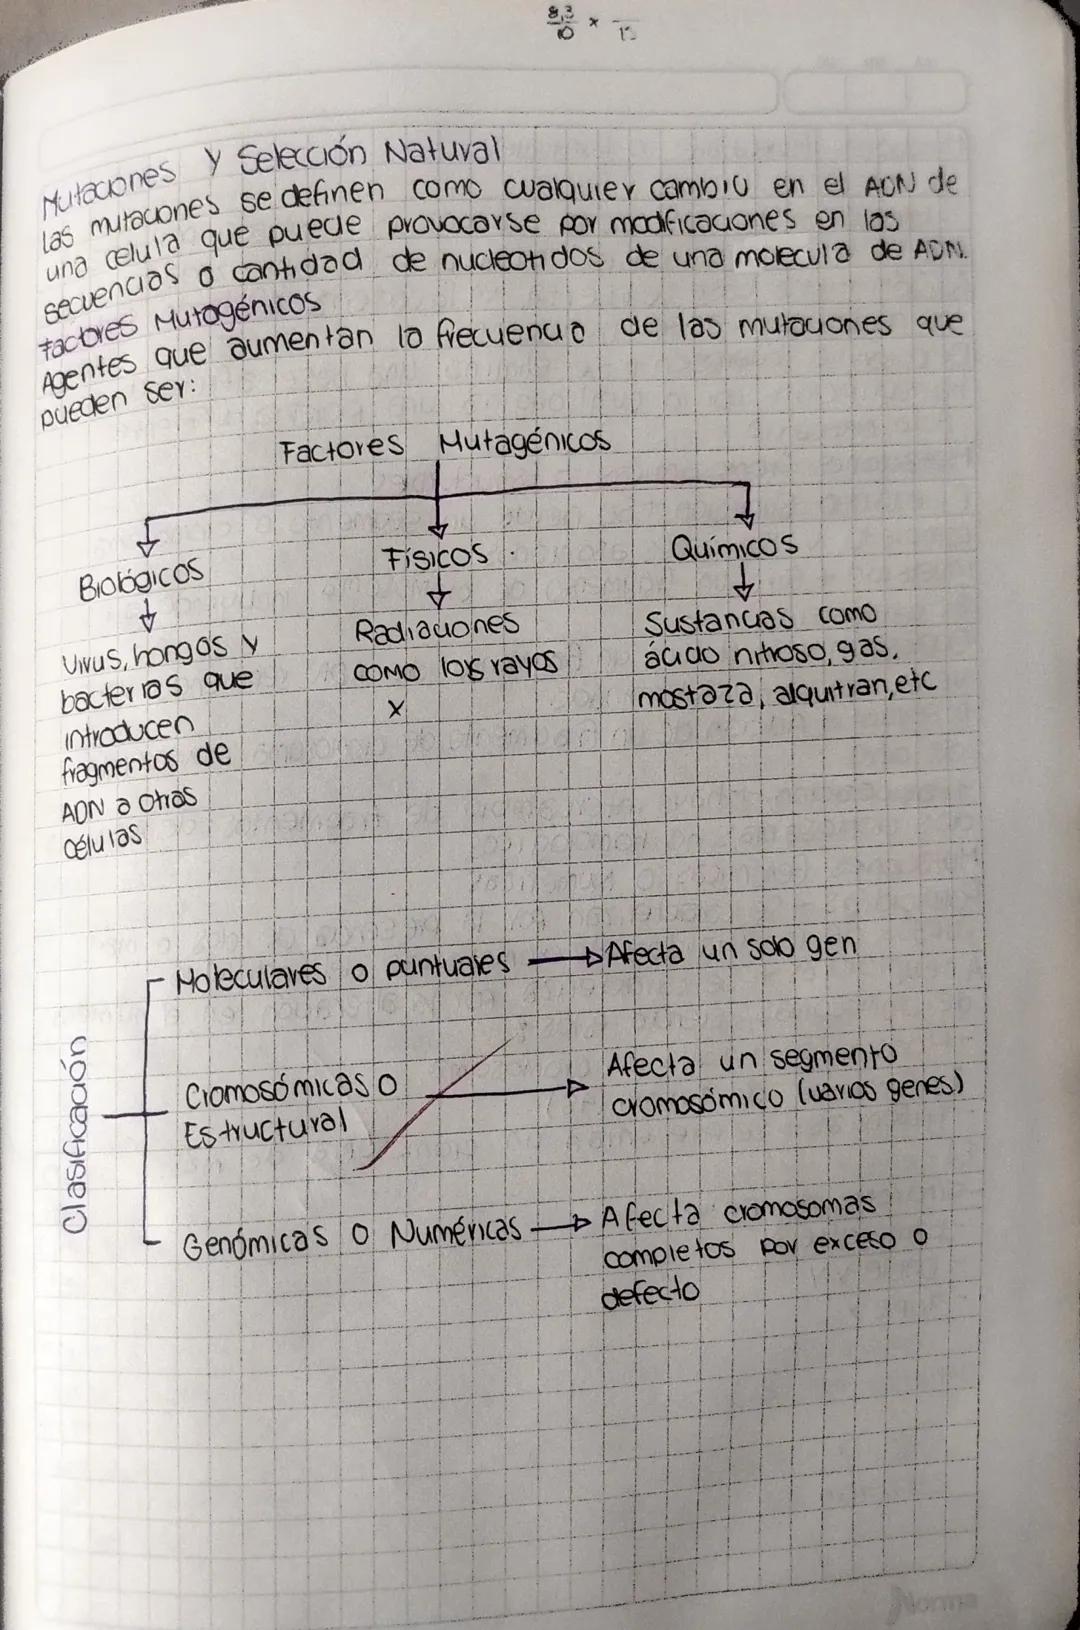 8,3
10 ×
Mutaciones y Selección Natural
las mutaciones se definen como cualquier cambio en el ADN de
una celula que puede provocarse por modificaciones en las
secuencias o cantidad de nucleotidos de una molecula de ADN.
Factores Mutogénicos
Agentes que aumentan la frecuencia de las mutaciones que
pueden ser:
Factores Mutagénicos
Biológicos Físicos Químicos
Virus, hongos y
bacterias que
introducen
fragmentos de
ADN a otras
células
Radiaciones
como los rayos
x
Sustancias como
ácido nitroso, gas,
mostaza, alquitran, etc
Clasificación
Moleculares o puntuales Afecta un solo gen
Cromosómicas o
Estructural
Afecta un segmento
cromosómico (varios genes)
Genómicas o Numéricas Afecta cromosomas
completos por exceso o
defecto
Norma